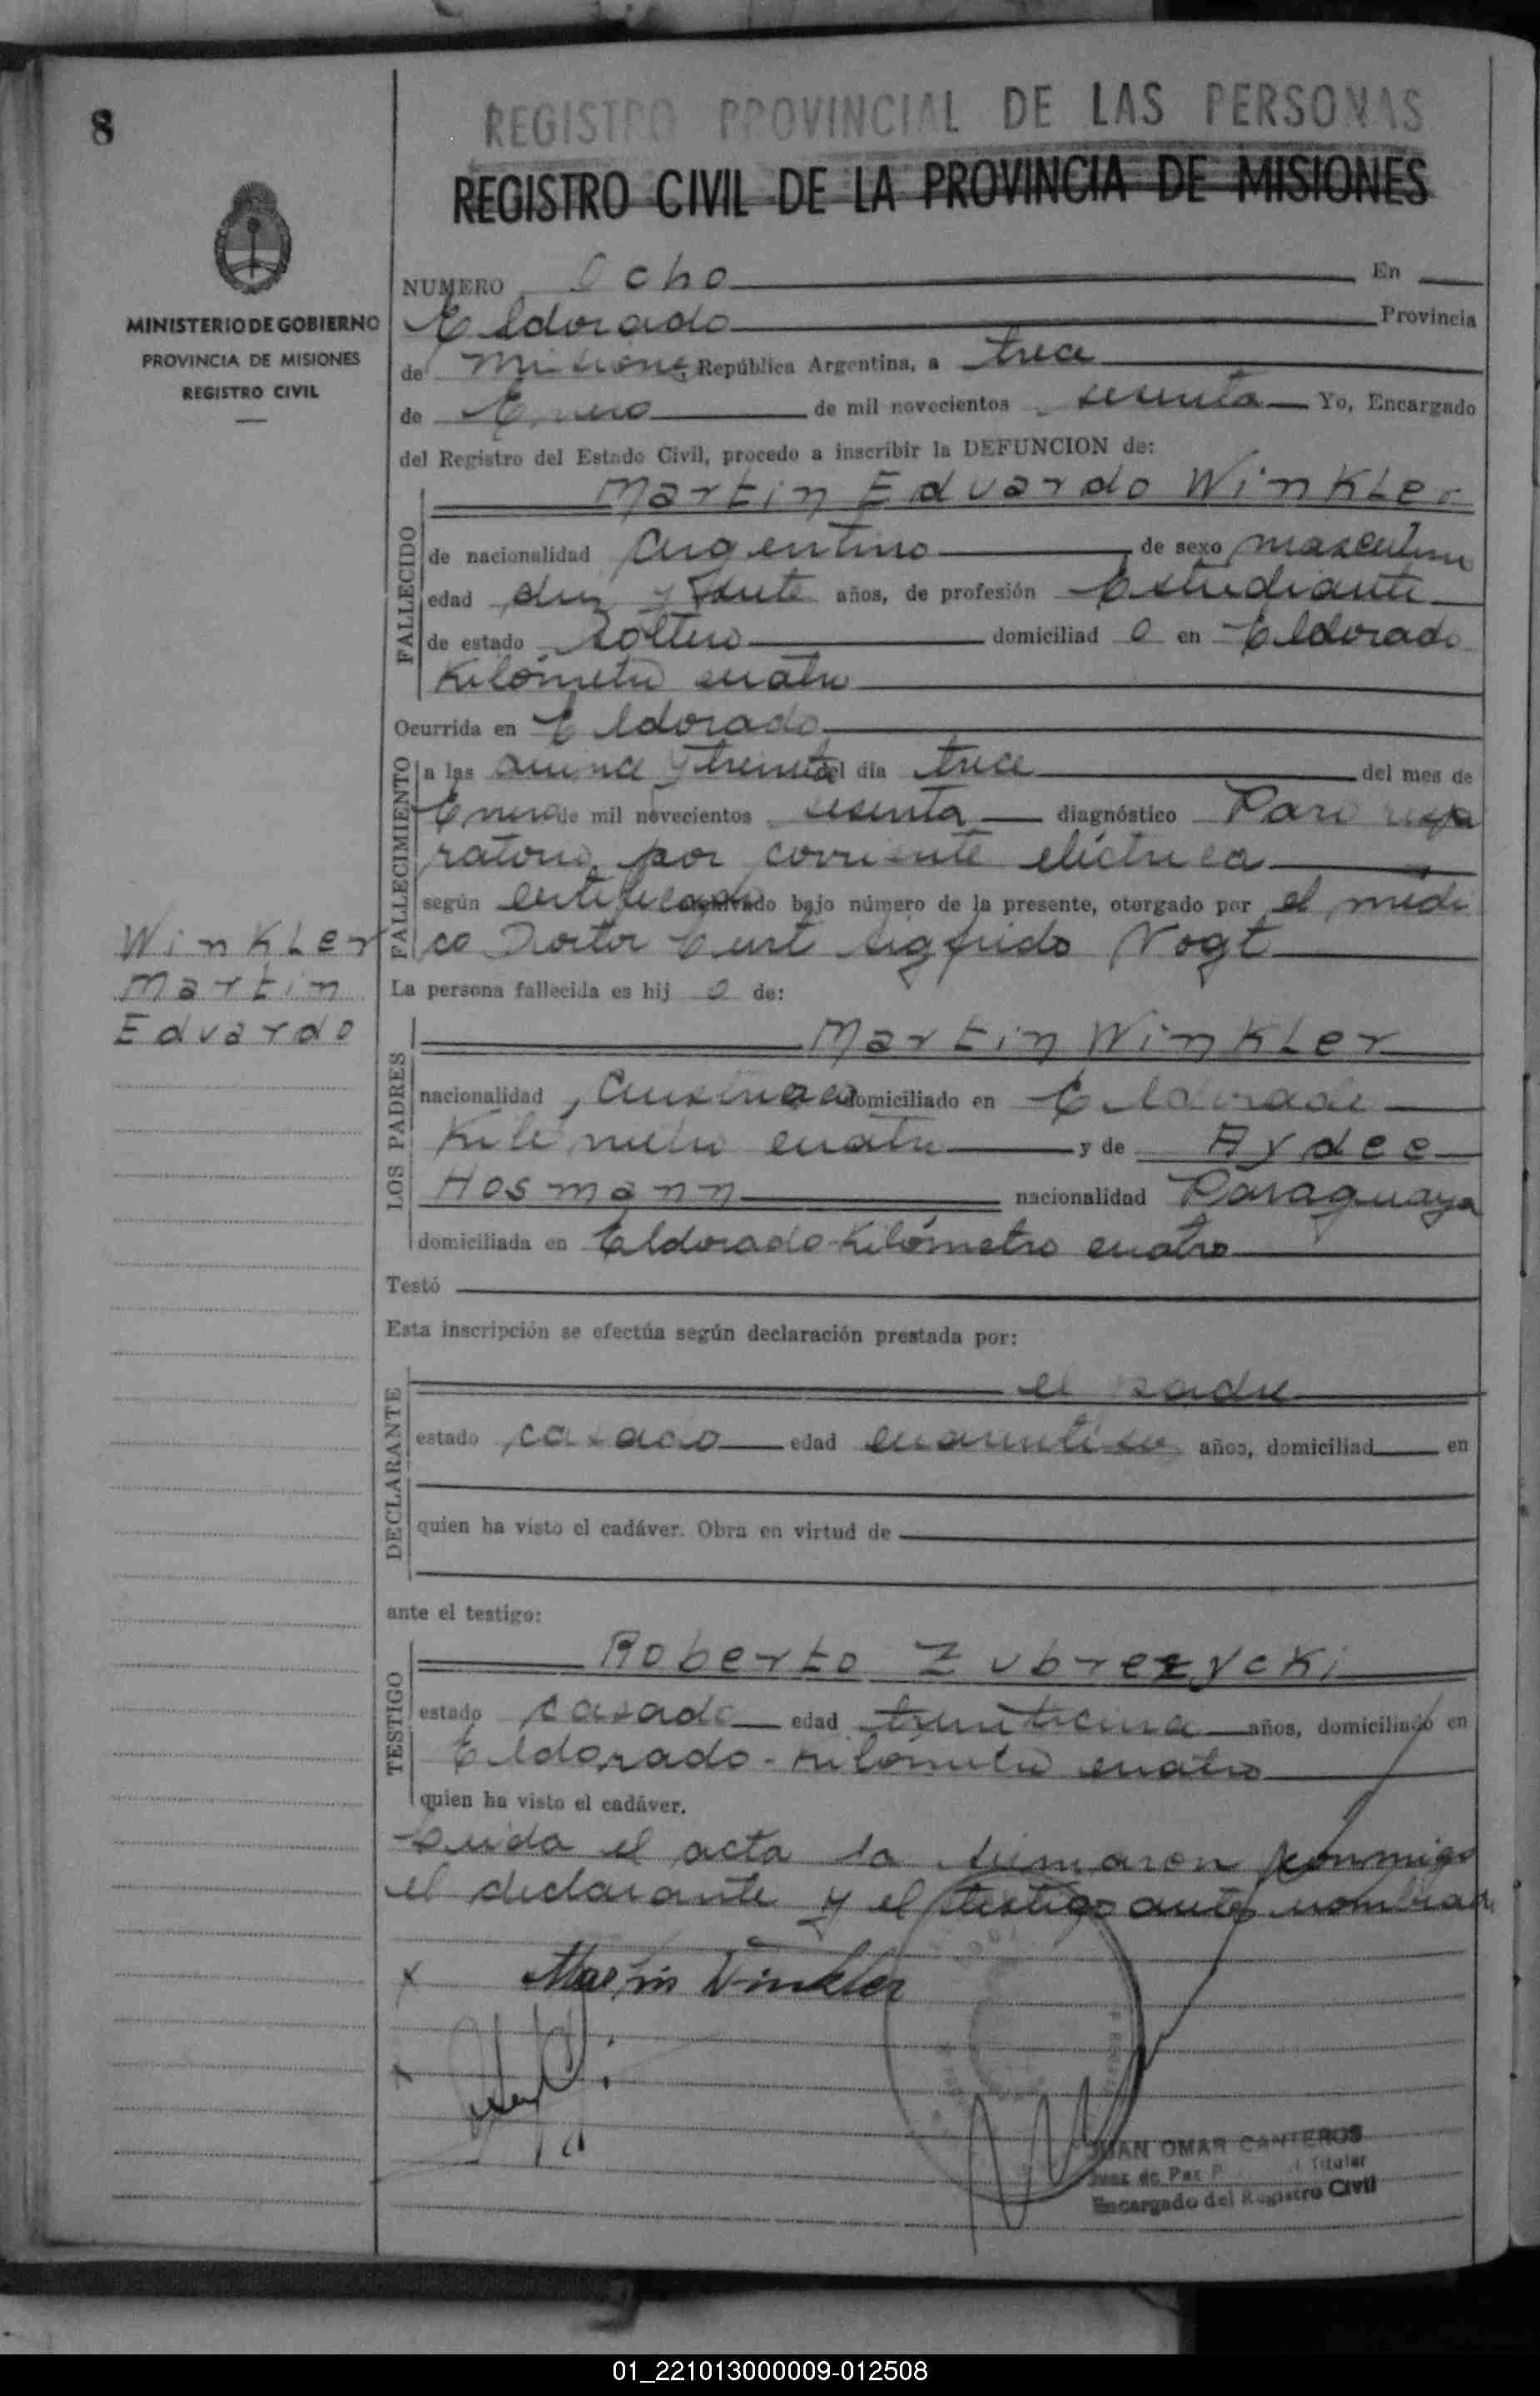 8
REGISTRO PROVINCIAL DE LAS PERSONAS
REGISTRO CIVIL DE LA PROVINCIA DE MISIONES
MINISTERIO DE GOBIERNO
PROVINCIA DE MISIONES
REGISTRO CIVIL
NUMERO Ocho En
Eldorado Provincia
de Misiones República Argentina, a trece
de Enero de mil novecientos sesenta Yo, Encargado
del Registro del Estado Civil, procedo a inscribir la DEFUNCION de:
FALLECIDO
Martin Eduardo Winkler
de nacionalidad Argentino de sexo masculino
edad diez y siete años, de profesión Estudiante
de estado Soltero domiciliad o en Eldorado
Kilómetro cuatro
Ocurrida en Eldorado
FALLECIMIENTO
a las quince y treinta del día trece del mes de
Enero de mil novecientos sesenta diagnóstico Paro respi
ratorio por corriente eléctrica
según certificado archivado bajo número de la presente, otorgado por el médi
co Doctor Curt Sigfrido Vogt
Winkler
Martin
Eduardo
La persona fallecida es hij o de:
LOS PADRES
Martin Winkler
nacionalidad Austriaca domiciliado en Eldorado
Kilómetro cuatro y de Aydee
Hosmann nacionalidad Paraguaya
domiciliada en Eldorado-Kilómetro cuatro
Testó
Esta inscripción se efectúa según declaración prestada por:
DECLARANTE
el padre
estado casado edad años, domiciliad en
quien ha visto el cadáver. Obra en virtud de
ante el testigo:
TESTIGO
Roberto Zubrezycki
estado casado edad años, domiciliado en
Eldorado-Kilómetro cuatro
quien ha visto el cadáver.
Leida el acta la firmaron conmigo
el declarante y el testigo antes nombrado
x Martin Winkler
x
JUAN OMAR CANTEROS
Juez de Paz P Titular
Encargado del Registro Civil
01_221013000009-012508